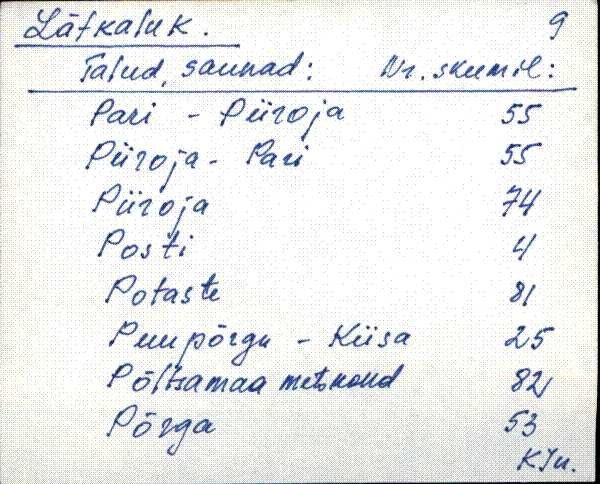 Lätkaluk. 9
Talud, saunad: Nr. skeemil:
Pari - Piiroja 55
Piiroja - Pari 55
Piiroja 74
Posti 4
Potaste 81
Puupõrgu - Kiisa 25
Põltsamaa metskond 82
Põrga 53